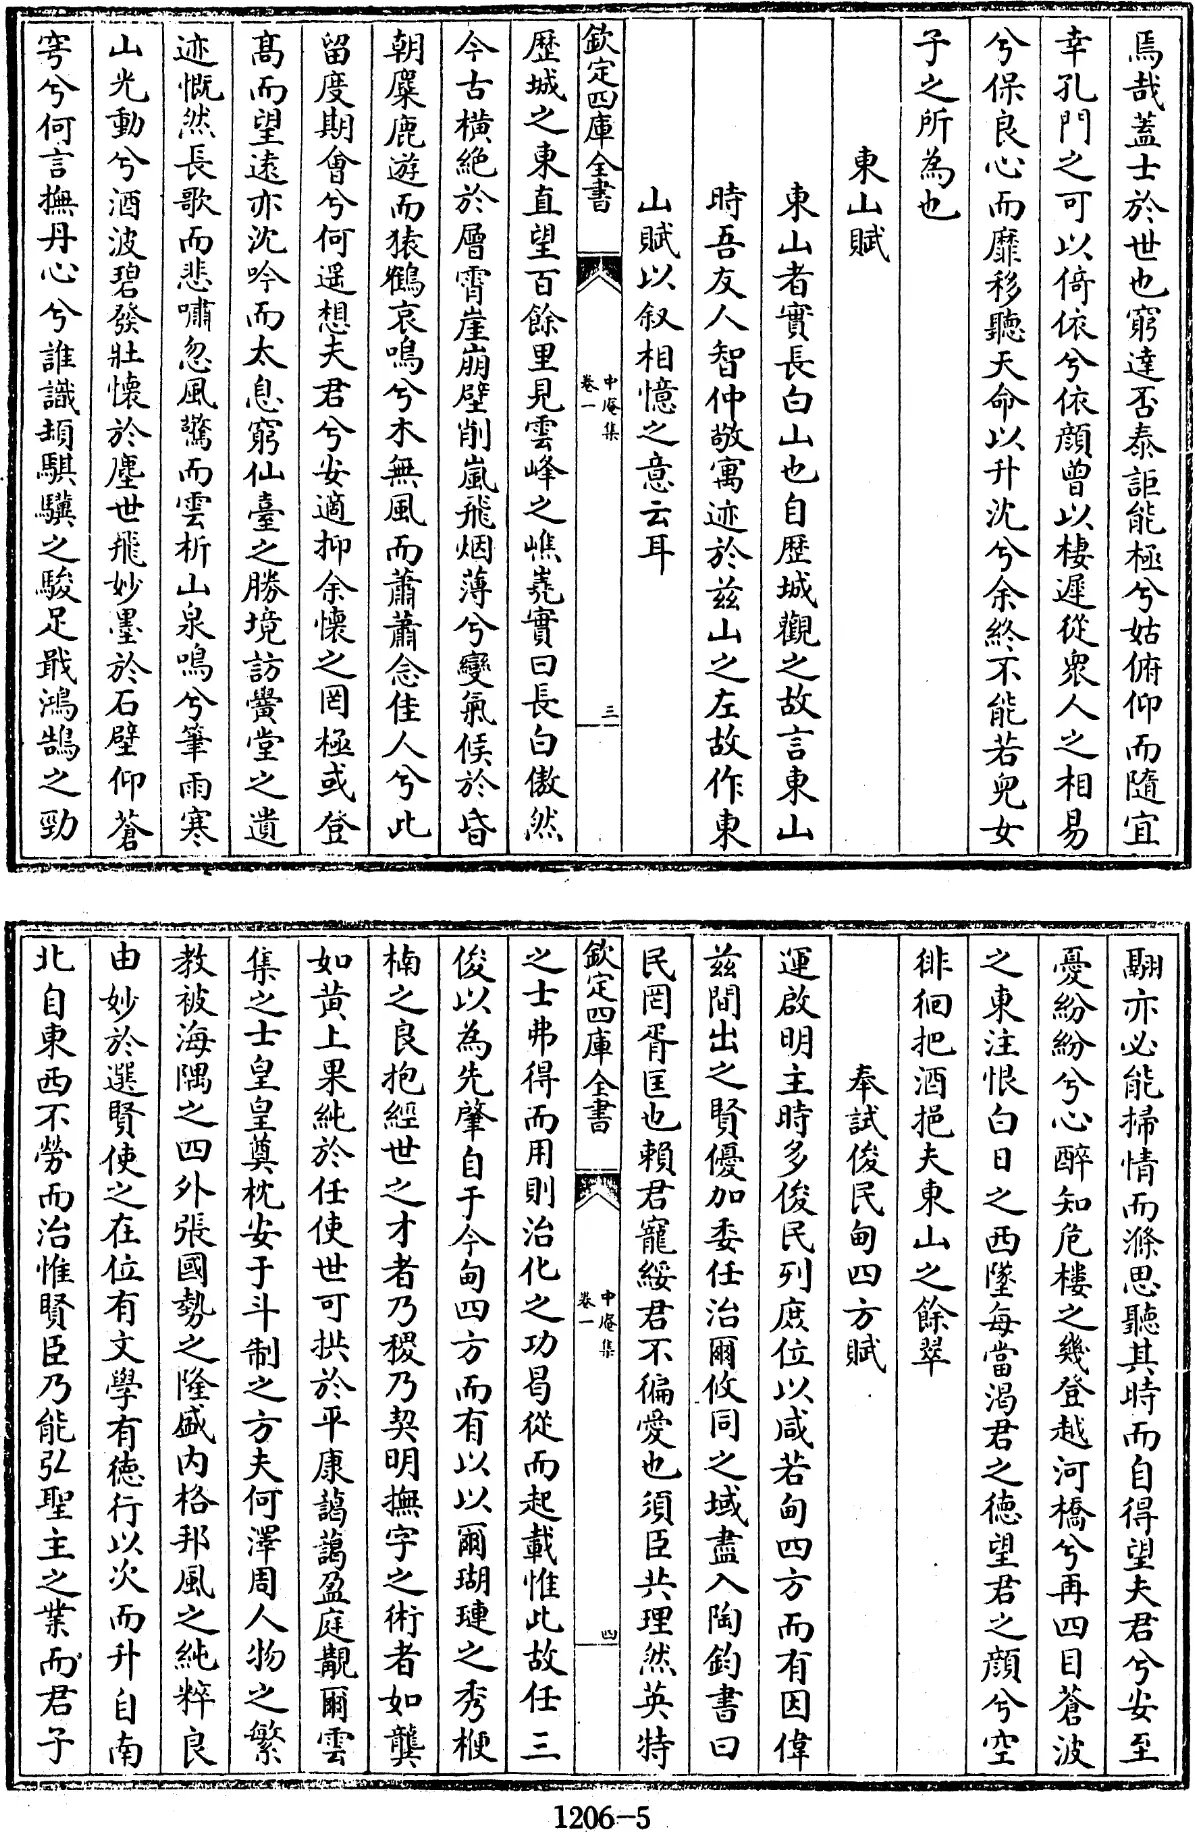 焉哉蓋士於世也窮達否泰詎能極兮姑俯仰而隨宜
幸孔門之可以倚依兮依顔曾以棲遲從衆人之相易
兮保良心而靡移聽天命以升沈兮余終不能若兒女
子之所為也
東山賦
東山者實長白山也自歷城觀之故言東山
時吾友人智仲敬寓迹於兹山之左故作東
山賦以叙相憶之意云耳
欽定四庫全書
中庵集
卷一
三
歷城之東直望百餘里見雲峰之嶕嶤實曰長白傲然
今古橫絶於層霄崖崩壁削嵐飛烟薄兮變氣候於昏
朝麋鹿遊而猿鶴哀鳴兮木無風而蕭蕭念佳人兮此
留度期會兮何遥想夫君兮安適抑余懷之罔極或登
髙而望逺亦沈吟而太息窮仙臺之勝境訪黌堂之遺
迹慨然長歌而悲嘯忽風驚而雲析山泉鳴兮筆雨寒
山光動兮酒波碧發壯懷於塵世飛妙墨於石壁仰蒼
穹兮何言撫丹心兮誰識頡騏驥之駿足戢鴻鵠之勁
翮亦必能掃情而滌思聽其時而自得望夫君兮安至
憂紛紛兮心醉知危樓之幾登越河橋兮再四目蒼波
之東注恨白日之西墜每當渴君之德望君之顔兮空
徘徊把酒挹夫東山之餘翠
奉試俊民甸四方賦
運啟明主時多俊民列庶位以咸若甸四方而有因偉
兹間出之賢優加委任治爾攸同之域盡入陶鈞書曰
民罔胥匡也賴君寵綏君不偏愛也須臣共理然英特
欽定四庫全書
中庵集
卷一
四
之士弗得而用則治化之功曷從而起載惟此故任三
俊以為先肇自于今甸四方而有以以爾瑚璉之秀楩
楠之良抱經世之才者乃稷乃契明撫字之術者如龔
如黄上果純於任使世可拱於平康藹藹盈庭覯爾雲
集之士皇皇奠枕安于斗制之方夫何澤周人物之繁
教被海隅之四外張國勢之隆盛内格邦風之純粹良
由妙於選賢使之在位有文學有德行以次而升自南
北自東西不勞而治惟賢臣乃能弘聖主之業而君子
1206-5